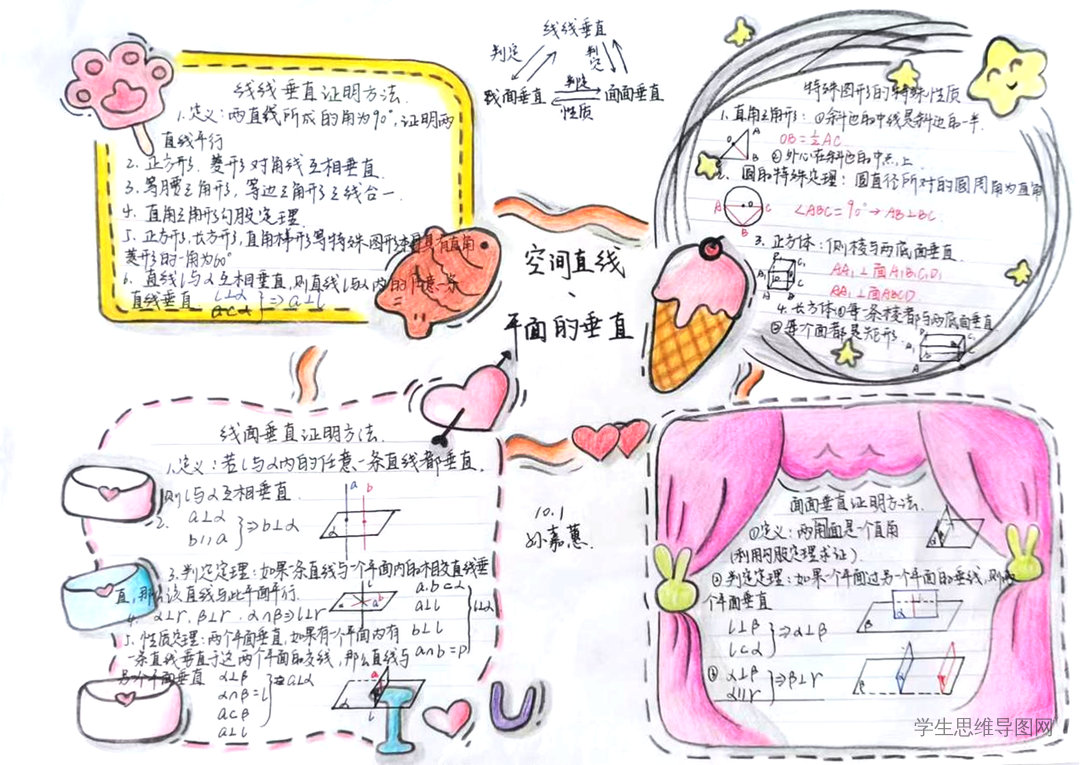 线线垂直
判定
判定
线面垂直
判定
性质
面面垂直
线线垂直证明方法.
1.定义:两直线所成的角为90°,证明两
直线平行
2. 正方形、菱形对角线互相垂直.
3. 等腰三角形,等边三角形三线合一.
4. 直角三角形勾股定理.
5. 正方形,长方形,直角梯形等特殊图形本身具有直角
菱形的一角为60°
6. 直线l与α互相垂直,则直线l与α内的任意一条
直线垂直. l⊥α
a⊂α }⇒a⊥l
特殊图形的特殊性质
1. 直角三角形: ①斜边的中线是斜边的一半.
OB=½AC
②外心在斜边的中点上.
2. 圆的特殊定理: 圆直径所对的圆周角为直角
∠ABC=90°→AB⊥BC.
3. 正方体: 1侧棱与两底面垂直.
AA₁⊥面A₁B₁C₁D₁
AA₁⊥面ABCD
4. 长方体①每一条棱都与两底面垂直
②每个面都是矩形.
空间直线
、
平面的垂直
线面垂直证明方法.
1.定义:若l与α内的任意一条直线都垂直,
则l与α互相垂直.
2. a⊥α
b∥a }⇒b⊥α
3.判定定理:如果一条直线与一个平面内的相交直线垂
直,那么该直线与此平面平行.
a,b⊂α
a⊥l
b⊥l
a∩b=P
l⊥α
4. α⊥r, β⊥r, α∩β⇒l⊥r
5. 性质定理:两个平面垂直,如果有一个平面内有
一条直线垂直于这两个平面的交线,那么直线与
另一个平面垂直
α⊥β
α∩β=l
a⊂β
a⊥l
}⇒a⊥α
10.1
孙嘉蕙.
面面垂直证明方法.
①定义:两角面是一个直角
(利用勾股定理求证).
②判定定理:如果一个平面过另一个平面的垂线,则两
个平面垂直
l⊥β
l⊂α }⇒α⊥β
③ α⊥β
α∥r }⇒β⊥r
学生思维导图网